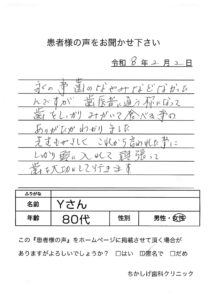 患者様の声をお聞かせ下さい
令和 8年 2月 2日
永い事歯のなやみなどなかった
んですが 歯医者に通う様になって
歯をしっかりみがいて食べる事の
ありがたさがわかりました
先生もやさしく これから言われた事に
しっかり頭に入れて 頑張って
歯を大切にして行きます
ふりがな
名前 Yさん
年齢 80代 性別 男性・女性
この『患者様の声』をホームページに掲載させて頂く場合が
ありますがよろしいでしょうか？ □はい ☑匿名で □だめ
ちかしげ歯科クリニック